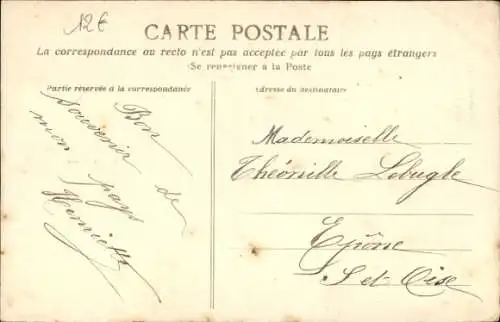 12€
CARTE POSTALE
La correspondance au recto n'est pas acceptée par tous les pays étrangers
Se renseigner à la Poste
Partie réservée à la correspondance
Adresse du destinataire
Bon
souvenir de
mon pays
Henriette
Mademoiselle
Théonille Lebugle
Epône
S et Oise